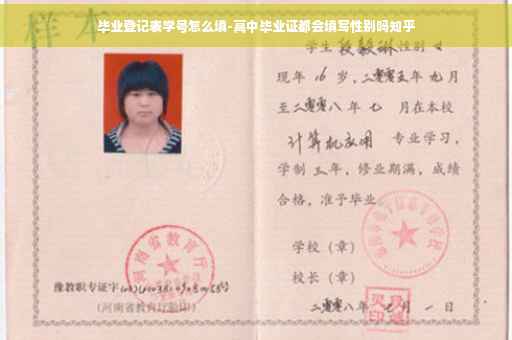 毕业登记表学号怎么填-高中毕业证都会填写性别吗知乎
样本
学生 段毅琳 性别 女
现年 16 岁,二零零五年 九月
至二零零八年 七 月在本校
计算机应用 专业学习,
学制 三年,修业期满,成绩
合格,准予毕业
学校(章)
校长(章)
二零零八年 月 一日
河南省教育厅
豫教职专证字
(河南省教育厅验印)